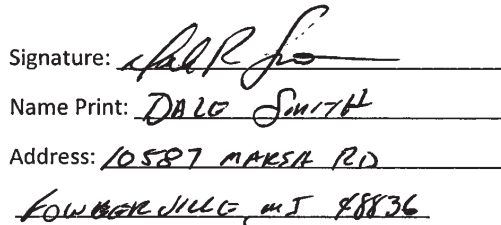 Signature: Dale R Smith
Name Print: DALE SMITH
Address: 10587 MARSH RD
FOWLERVILLE, MI 48836